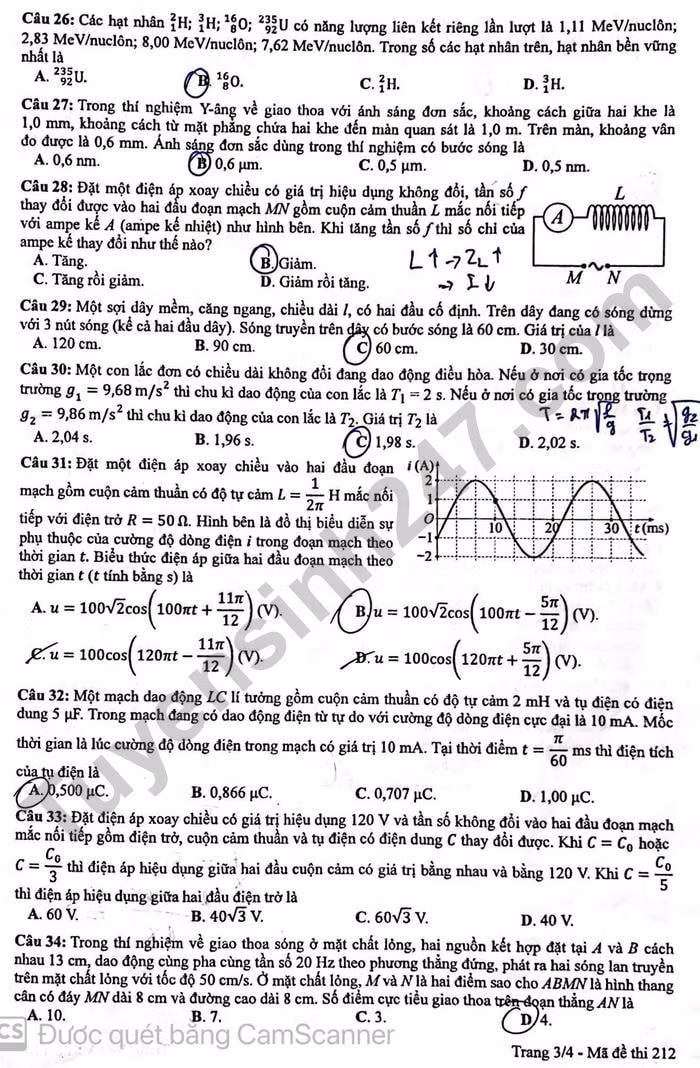 Câu 26: Các hạt nhân ²₁H; ³₁H; ¹⁶₈O; ²³⁵₉₂U có năng lượng liên kết riêng lần lượt là 1,11 MeV/nuclôn;
2,83 MeV/nuclôn; 8,00 MeV/nuclôn; 7,62 MeV/nuclôn. Trong số các hạt nhân trên, hạt nhân bền vững
nhất là
A. ²³⁵₉₂U. B. ¹⁶₈O. C. ²₁H. D. ³₁H.
Câu 27: Trong thí nghiệm Y-âng về giao thoa với ánh sáng đơn sắc, khoảng cách giữa hai khe là
1,0 mm, khoảng cách từ mặt phẳng chứa hai khe đến màn quan sát là 1,0 m. Trên màn, khoảng vân
đo được là 0,6 mm. Ánh sáng đơn sắc dùng trong thí nghiệm có bước sóng là
A. 0,6 nm. B. 0,6 µm. C. 0,5 µm. D. 0,5 nm.
Câu 28: Đặt một điện áp xoay chiều có giá trị hiệu dụng không đổi, tần số f
thay đổi được vào hai đầu đoạn mạch MN gồm cuộn cảm thuần L mắc nối tiếp
với ampe kế A (ampe kế nhiệt) như hình bên. Khi tăng tần số f thì số chỉ của
ampe kế thay đổi như thế nào?
A. Tăng. B. Giảm.
C. Tăng rồi giảm. D. Giảm rồi tăng.
L↑ → Z_L ↑
→ I↓
A L
M N
Câu 29: Một sợi dây mềm, căng ngang, chiều dài l, có hai đầu cố định. Trên dây đang có sóng dừng
với 3 nút sóng (kể cả hai đầu dây). Sóng truyền trên dây có bước sóng là 60 cm. Giá trị của l là
A. 120 cm. B. 90 cm. C. 60 cm. D. 30 cm.
Câu 30: Một con lắc đơn có chiều dài không đổi đang dao động điều hòa. Nếu ở nơi có gia tốc trọng
trường g₁ = 9,68 m/s² thì chu kì dao động của con lắc là T₁ = 2 s. Nếu ở nơi có gia tốc trọng trường
g₂ = 9,86 m/s² thì chu kì dao động của con lắc là T₂. Giá trị T₂ là
T = 2π√(l/g) T₁/T₂ = √(g₂/g₁)
A. 2,04 s. B. 1,96 s. C. 1,98 s. D. 2,02 s.
Câu 31: Đặt một điện áp xoay chiều vào hai đầu đoạn
mạch gồm cuộn cảm thuần có độ tự cảm L = 1/2π H mắc nối
tiếp với điện trở R = 50 Ω. Hình bên là đồ thị biểu diễn sự
phụ thuộc của cường độ dòng điện i trong đoạn mạch theo
thời gian t. Biểu thức điện áp giữa hai đầu đoạn mạch theo
thời gian t (t tính bằng s) là
i (A)
2
1
O 10 20 30 t(ms)
−1
−2
A. u = 100√2cos(100πt + 11π/12) (V). B. u = 100√2cos(100πt − 5π/12) (V).
C. u = 100cos(120πt − 11π/12) (V). D. u = 100cos(120πt + 5π/12) (V).
Câu 32: Một mạch dao động LC lí tưởng gồm cuộn cảm thuần có độ tự cảm 2 mH và tụ điện có điện
dung 5 µF. Trong mạch đang có dao động điện từ tự do với cường độ dòng điện cực đại là 10 mA. Mốc
thời gian là lúc cường độ dòng điện trong mạch có giá trị 10 mA. Tại thời điểm t = π/60 ms thì điện tích
của tụ điện là
A. 0,500 µC. B. 0,866 µC. C. 0,707 µC. D. 1,00 µC.
Câu 33: Đặt điện áp xoay chiều có giá trị hiệu dụng 120 V và tần số không đổi vào hai đầu đoạn mạch
mắc nối tiếp gồm điện trở, cuộn cảm thuần và tụ điện có điện dung C thay đổi được. Khi C = C₀ hoặc
C = C₀/3 thì điện áp hiệu dụng giữa hai đầu cuộn cảm có giá trị bằng nhau và bằng 120 V. Khi C = C₀/5
thì điện áp hiệu dụng giữa hai đầu điện trở là
A. 60 V. B. 40√3 V. C. 60√3 V. D. 40 V.
Câu 34: Trong thí nghiệm về giao thoa sóng ở mặt chất lỏng, hai nguồn kết hợp đặt tại A và B cách
nhau 13 cm, dao động cùng pha cùng tần số 20 Hz theo phương thẳng đứng, phát ra hai sóng lan truyền
trên mặt chất lỏng với tốc độ 50 cm/s. Ở mặt chất lỏng, M và N là hai điểm sao cho ABMN là hình thang
cân có đáy MN dài 8 cm và đường cao dài 8 cm. Số điểm cực tiểu giao thoa trên đoạn thẳng AN là
A. 10. B. 7. C. 3. D. 4.
CS Được quét bằng CamScanner
Trang 3/4 - Mã đề thi 212
Tuyensinh247.com